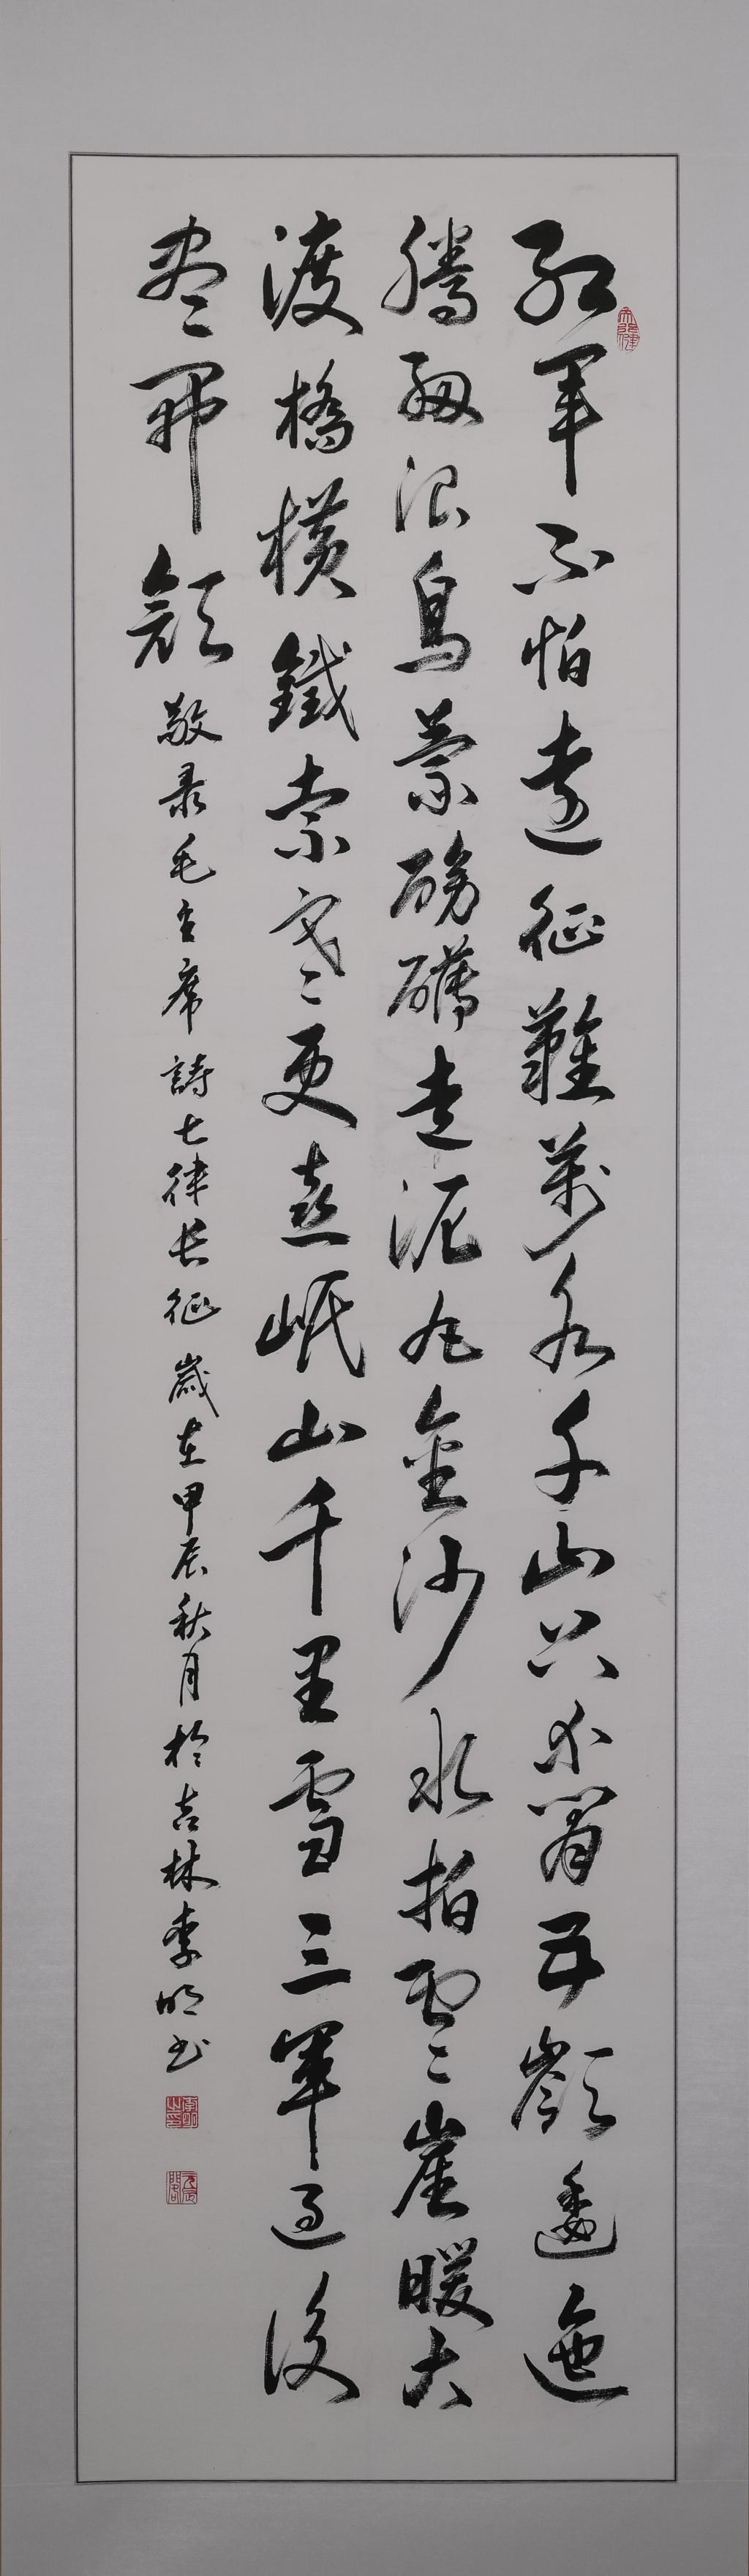 紅軍不怕遠征難萬水千山只等閒五嶺逶迤
騰細浪烏蒙磅礴走泥丸金沙水拍雲崖暖大
渡橋橫鐵索寒更喜岷山千里雪三軍過後
盡開顏 敬录毛主席詩七律長征 歲在甲辰秋月於吉林李明书